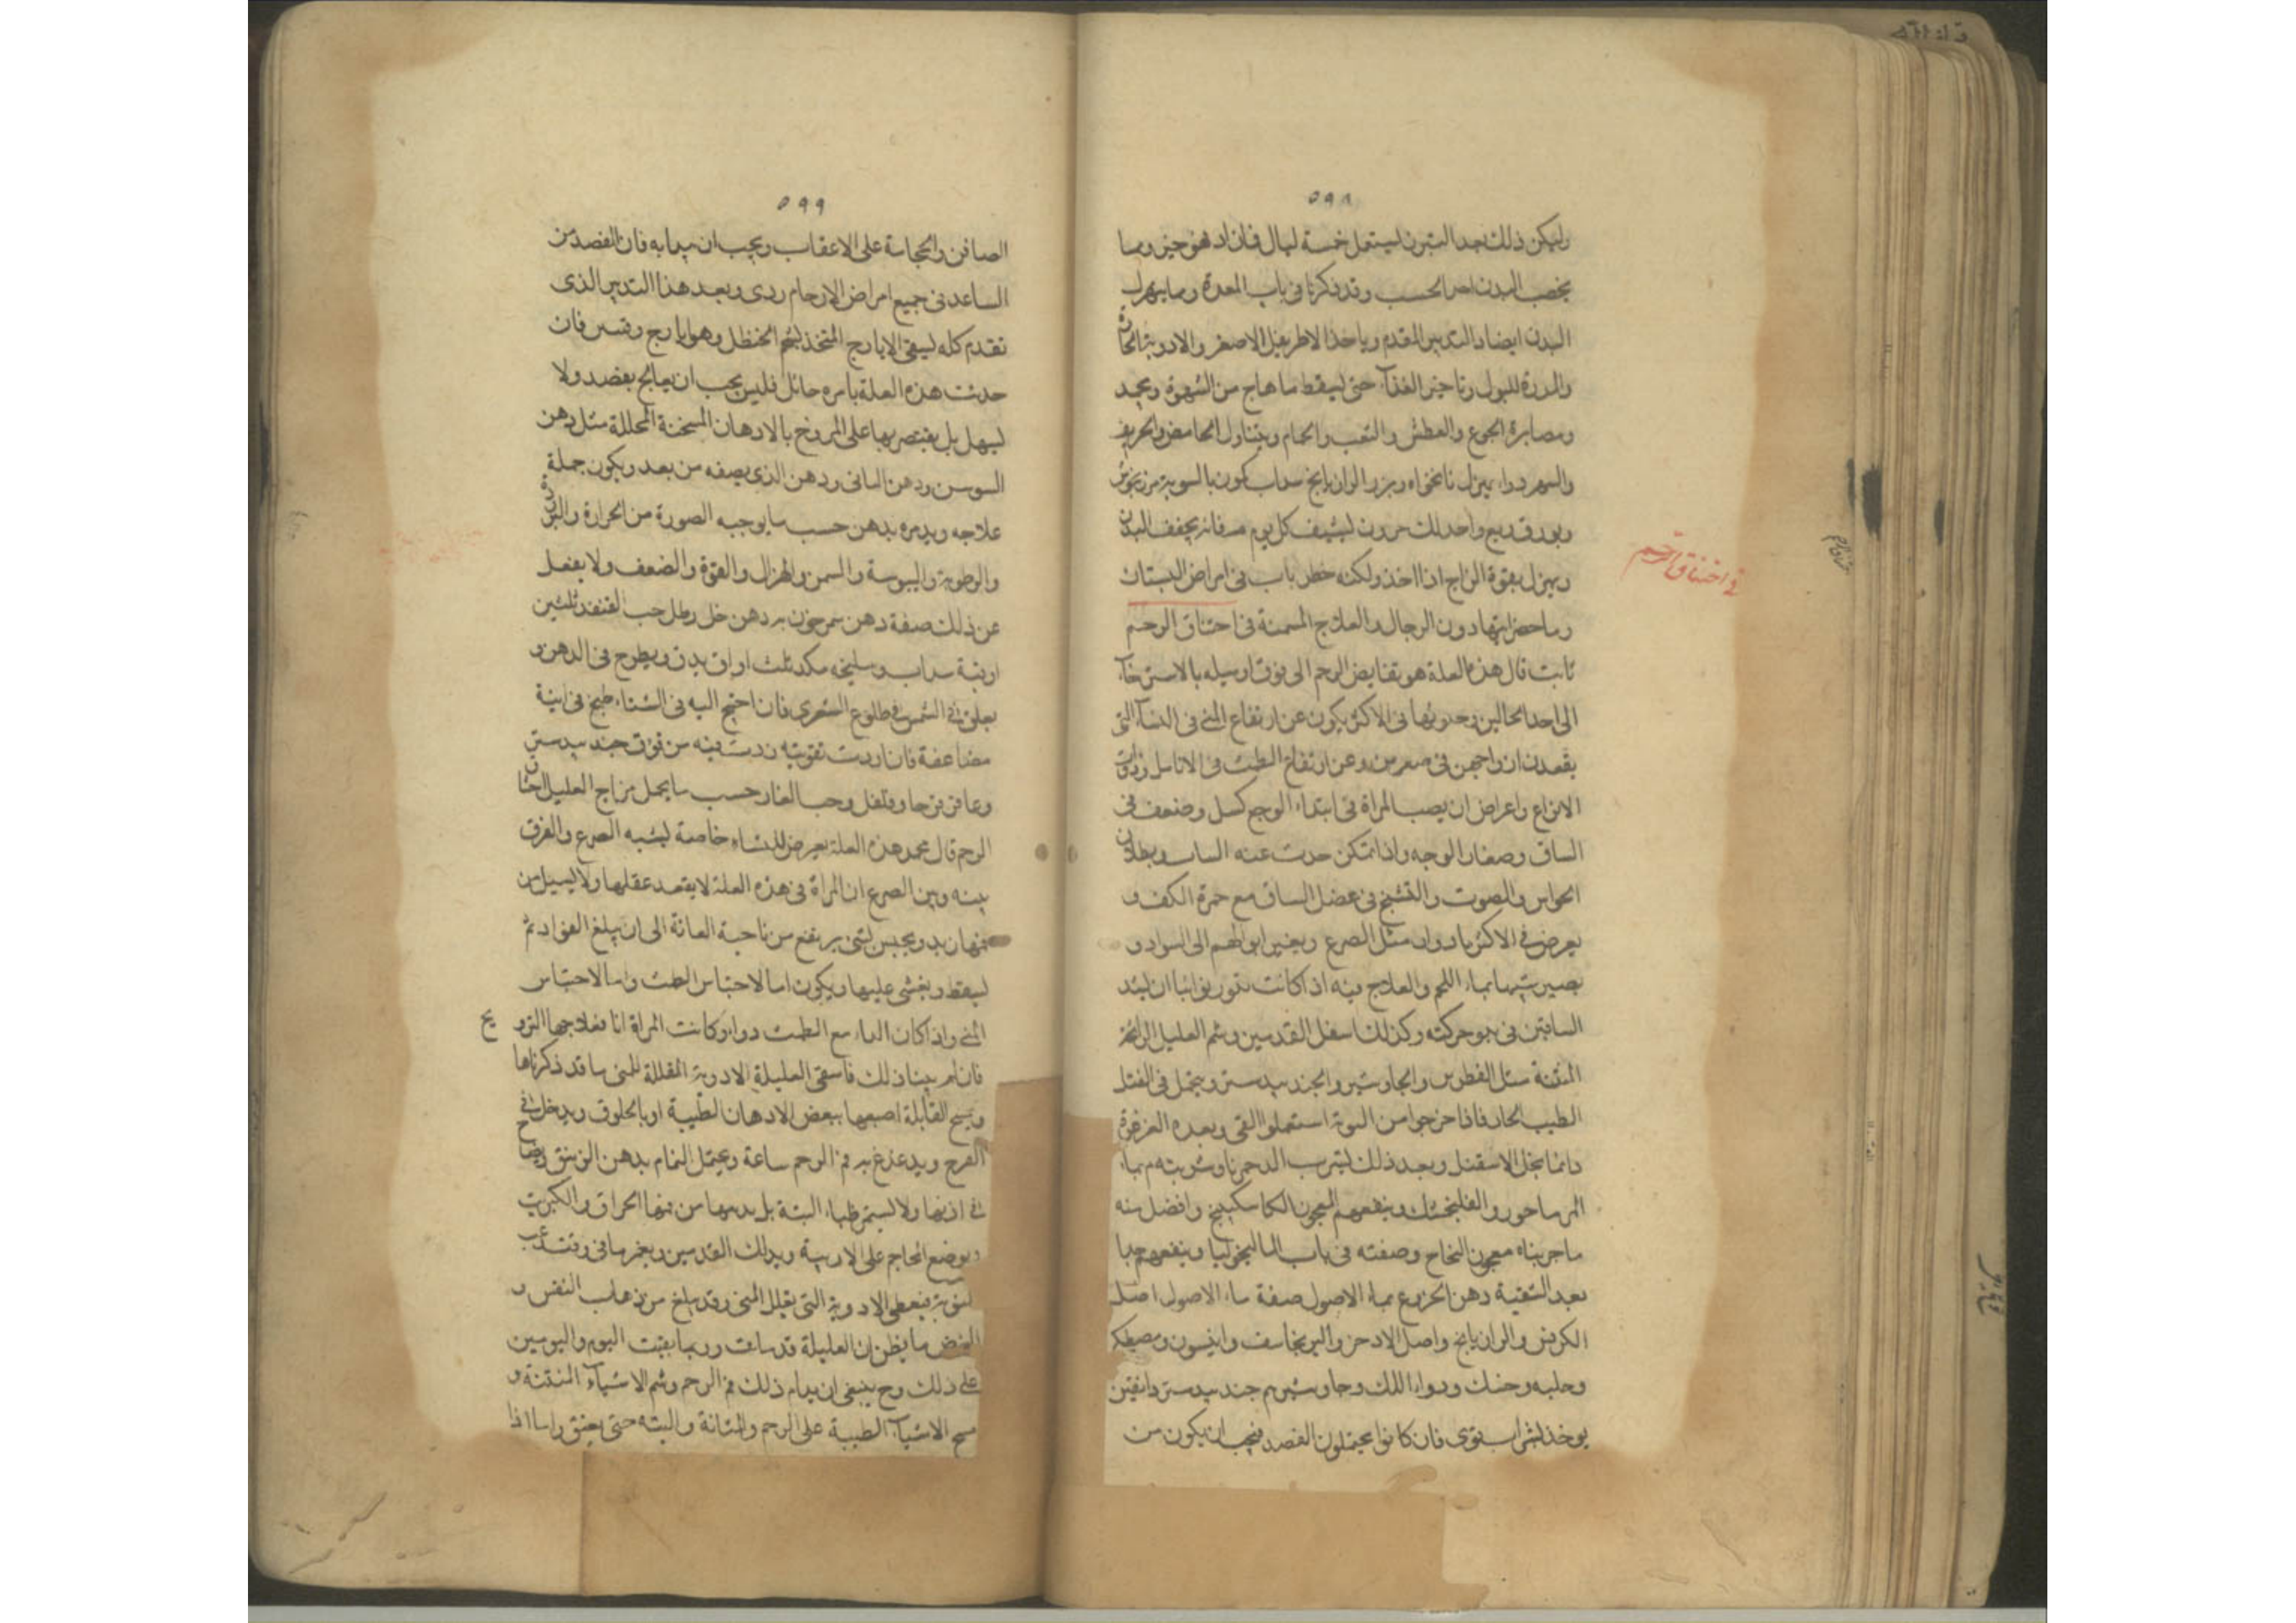 ٥٩٨
وليكن ذلك بعد التبرز ليستعمل خمسة ليال فان زاد فهو جيز ومما
يخصب البدن احر الحسب وقد ذكرنا في باب المعدة ومما يهزل
البدن ايضا والتدبير المقدم وياخذ الاطريفل الاصغر والادوية الحارة
والمدرة للبول وتاخير الغذآء حتى ليسقط ما هاج من الشهوة ويجيد
ومصابرة الجوع والعطش والتعب والحمام ويتناول الحامض والحريف
والسهر دواء يهزل نانخواه وبزر الرازيانج سداب كمون بالسوية مرزنجوش
وبورق ربع واحد لك ليشف كل يوم فانه يجفف البدن
ويهزل بقوة المزاج اذا اخذ ولكنه خطر باب في امراض البستان
في اختناق الرحم
وما حضرايتها دون الرجال والعلاج المسمنة في احتناق الرحم
ثابت قال هذه العلة هو تقايض الرحم الى فوق او ميله بالاسترخآء
الى احد الحالين وحدوثها في الاكثر يكون عن ارتفاع المني في النسآء التي
يقعدن ازواجهن في صغرهن وعن ارتفاع الطمث في الاناسل وذوات
الانواع واعراض ان يصب المراة في ابتداء الوجع كسل وضعف في
الساق وصفار الوجه واذا تمكن حدث عنه السبات وبطلان
الحواس والصوت والتشنج في عضل الساق مع حمرة الكف و
يعرض في الاكثر بادوار مثل الصرع ويغير ابوالهم الى السواد و
يصير شبيها بماء اللحم والعلاج فيه اذا كانت بدور نوائبا ان يشد
الساقين في بدو حركته وكذلك اسفل القدمين وشم العليل الرائحة
المنتنة مثل القطران والجاوشير والجندبيدستر ويتحمل في الفتل
الطيب الحار فاذا خرجوا من النوبة استعملوا القي وبعده الغرغرة
دائما بخل الاسقيل وبعد ذلك ليشرب الدحمرثا وشربته م بماء
المرماحور والفلنجمشك وينفعهم المعجون الكاسكبينج وافضل منه
ما جربناه معجون النجاح وصفته في باب الماليخوليا وينفعهم جدا
بعد التنقية دهن الخروع بماء الاصول صفة ماء الاصول اصل
الكرفس والرازيانج واصل الاذخر والبرنجاسف وانيسون ومصطكي
وحلبه وحسك ودواء اللك وجاوشير م جندبيدستر دانقين
يوخذ لشراب قوي فان كانوا يحتملون الفصد فيجب ان يكون من
٥٩٩
الصافن والحجامة على الاعقاب ويجب ان يبدا به فان الفصد من
الساعد في جميع امراض الارحام ردي وبعد هذا التدبير الذي
تقدم كله ليسقى الايارج المتخذ لشحم الحنظل وهو ايارج وقسر فان
حدثت هذه العلة بامره حائل فليس يجب ان يعالج بفصد ولا
ليسهل بل يقتصر بها على المروخ بالادهان المسخنة المحللة مثل دهن
السوسن ودهن البانى ودهن الذي يصفه من بعد ويكون جملة
علاجه وتدبيره بدهن حسب ما يوجبه الصورة من الحرارة والبرودة
والرطوبة واليبوسة والسمن والهزال والقوة والضعف ولا يفصل
عن ذلك صفة دهن سمرخون به دهن خل رطل حب القنفد ثلثين
اوقية سداب وسليخه مكد ثلث اواق يدق ويطرح في الدهن و
يعلق في الشمس في طلوع الشعرى فان احتيج اليه في الشتاء طبخ في انية
مضاعفة فان اردت تقويته زدت فيه من فوق جندبيدستر
وعاقرقرحا وفلفل وحب الغار حسب ما يحمل مزاج العليل اختناق
الرحم قال محمد هذه العلة يعرض للنساء خاصة ليشبه الصرع والفرق
بينه وبين الصرع ان المراة في هذه العلة لا يفقد عقلها ولا ليسيل من
فمها زبد ويحبس لشئ يرتفع من ناحية العانة الى ان يبلغ الفؤاد ثم
ليسقط ويغشى عليها ويكون اما لاحتباس الطمث واما لاحتباس
المني واذا كان الداء مع الطمث دواؤ كانت المراة انا فعلاجها التزويج
فان لم يتهيا ذلك فاسقى العليلة الادوية المقللة للمني ما قد ذكرناها
ويمسح القابلة اصبعها ببعض الادهان الطيبة او بالخلوق ويدخل في
الفرج ويدغدغ به فم الرحم ساعة ويحتمل النمام بدهن الزنبق ريضا
في اذنها ولا ليستمر طباء البتة بل يدمها من فمها الحراق والكبريت
ويوضع المحاجم على الاربية ويدلك القدمين ويغمزها في وقت
النوبة فيعطي الادوية التي يقلل المني وقد يبلغ من ذهاب النفس و
النبض ما يظن ان العليلة قد ماتت وربما بقيت اليوم واليومين
على ذلك وح ينبغي ان يدام ذلك فم الرحم وشم الاشيآء المنتنة و
مسح الاشيآء الطيبة على الرحم والمثانة والبته حتى يعنق راسا اذا